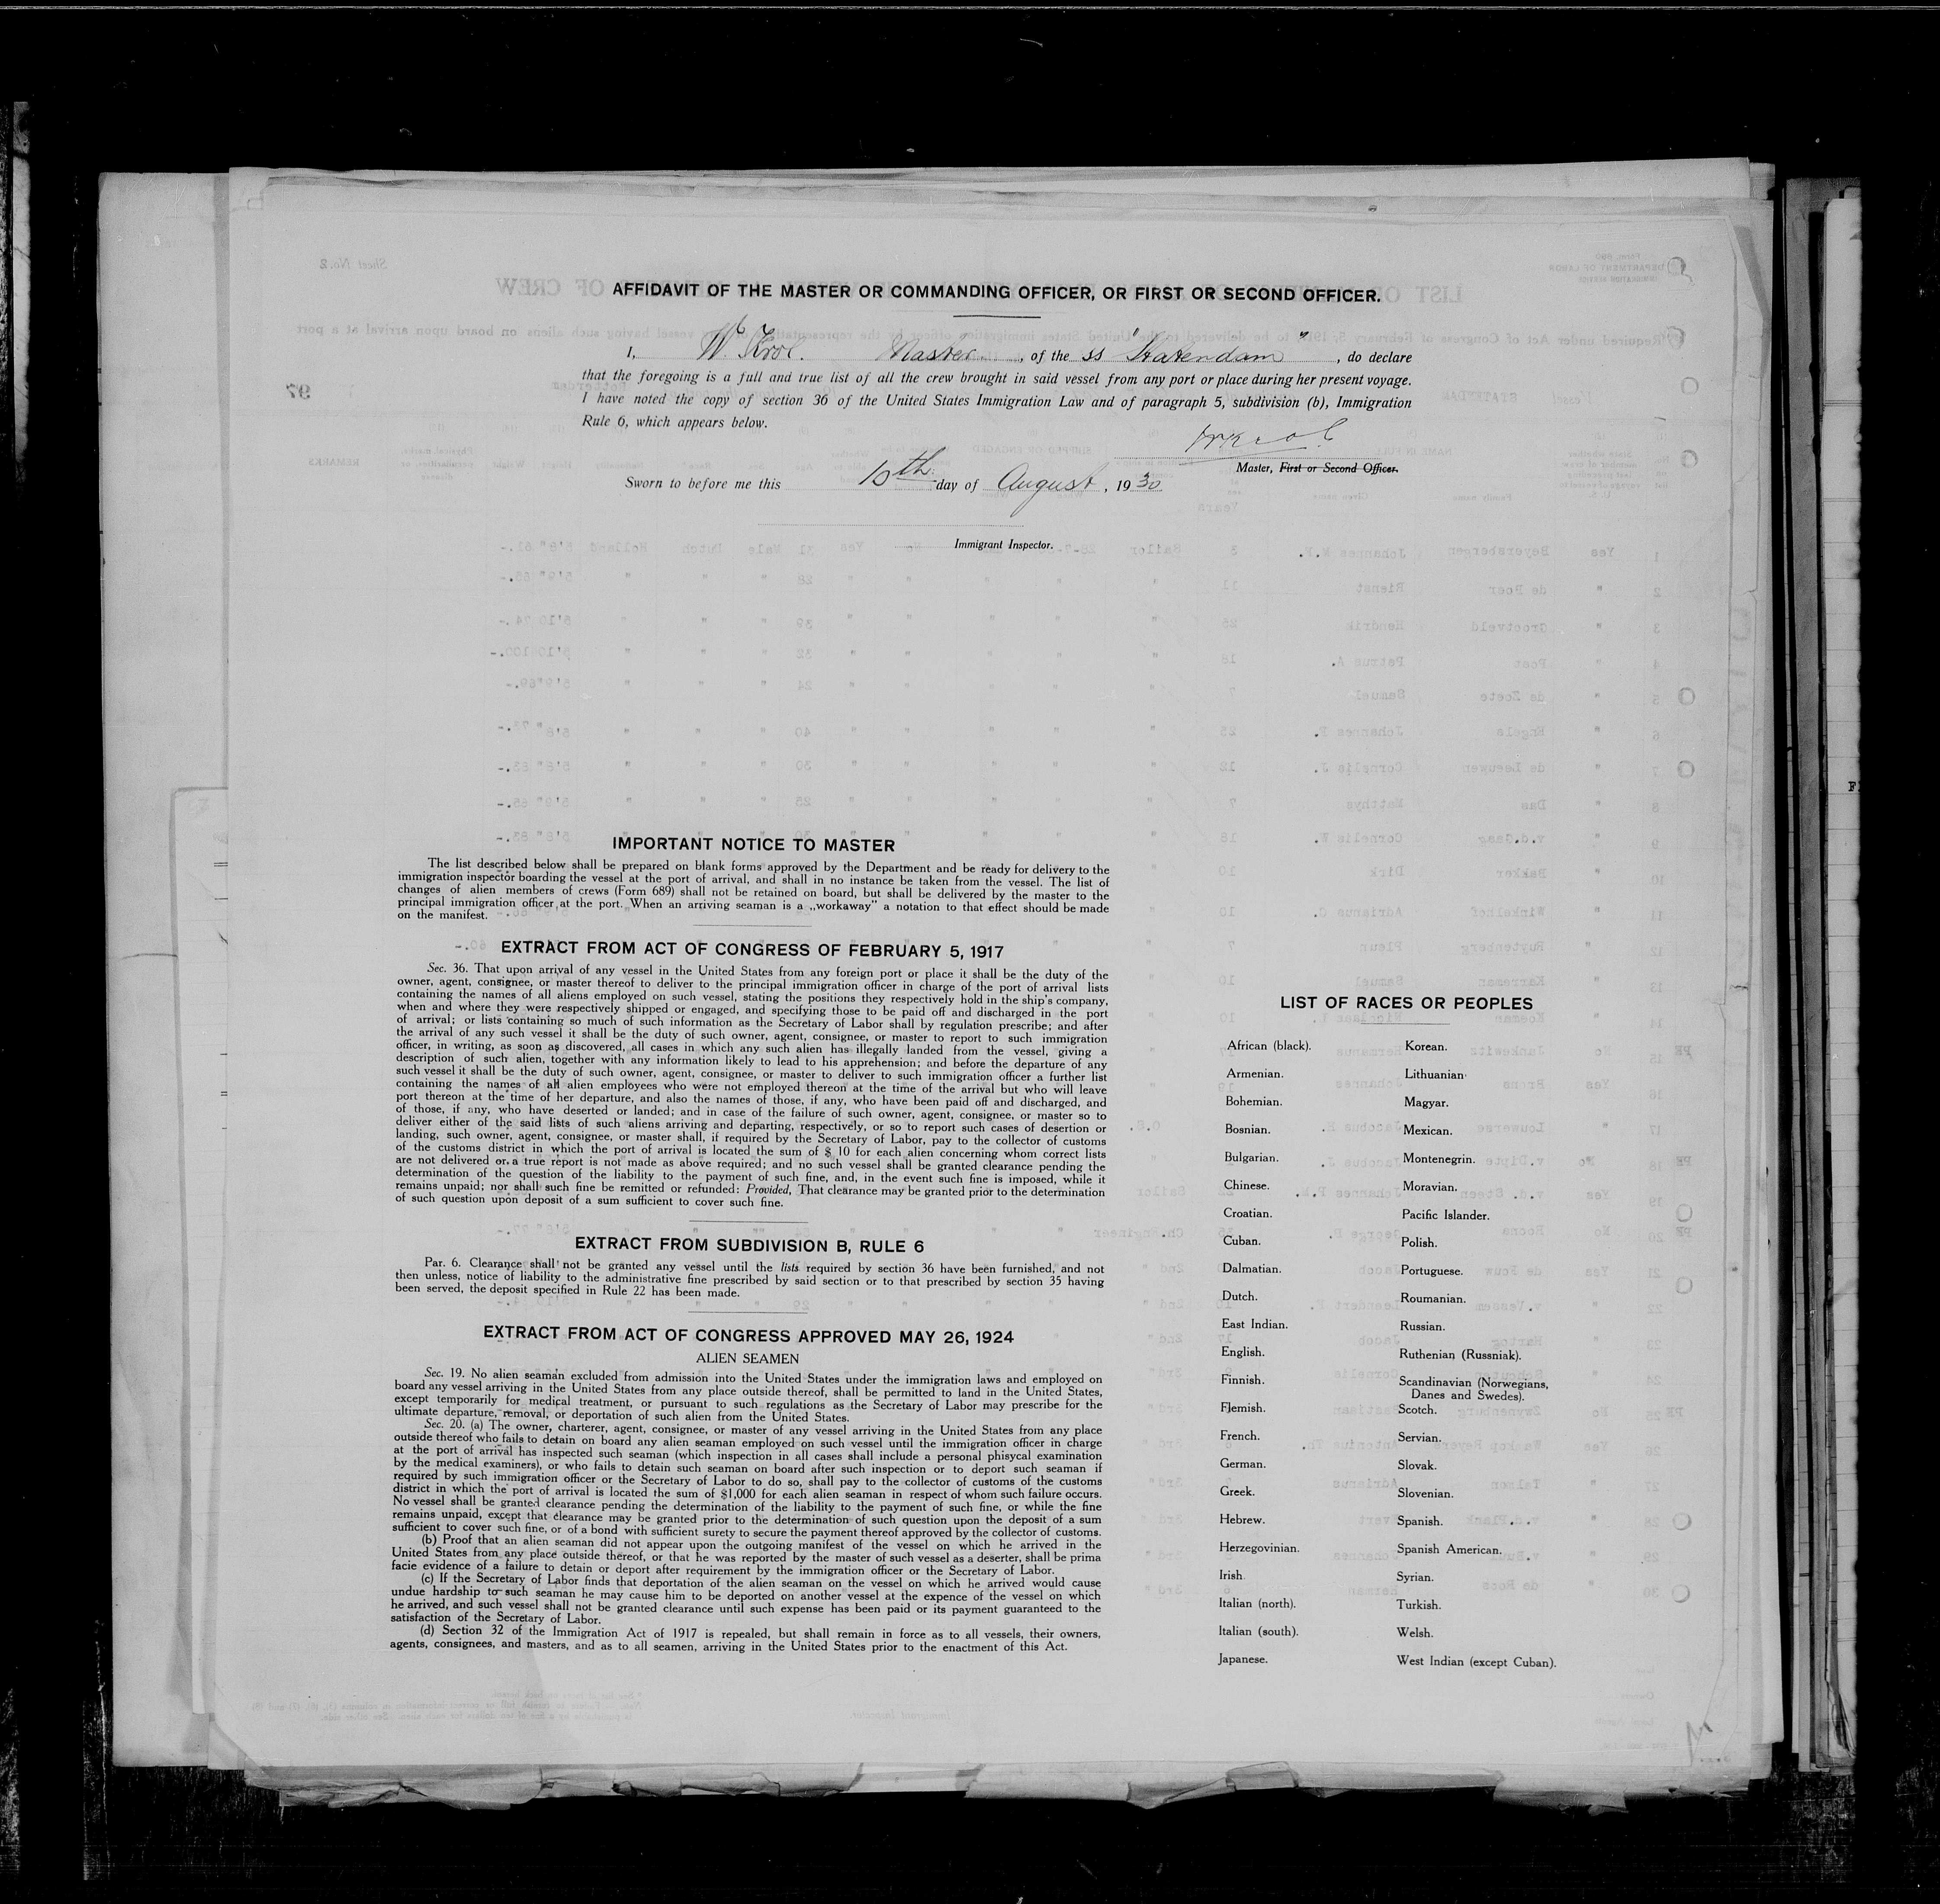 AFFIDAVIT OF THE MASTER OR COMMANDING OFFICER, OR FIRST OR SECOND OFFICER.
I, W. Krol. Master, of the ss "Statendam", do declare
that the foregoing is a full and true list of all the crew brought in said vessel from any port or place during her present voyage.
I have noted the copy of section 36 of the United States Immigration Law and of paragraph 5, subdivision (b), Immigration
Rule 6, which appears below.
WKrol
Master, First or Second Officer.
Sworn to before me this day of August, 1930
Immigrant Inspector.
IMPORTANT NOTICE TO MASTER
The list described below shall be prepared on blank forms approved by the Department and be ready for delivery to the
immigration inspector boarding the vessel at the port of arrival, and shall in no instance be taken from the vessel. The list of
changes of alien members of crews (Form 689) shall not be retained on board, but shall be delivered by the master to the
principal immigration officer at the port. When an arriving seaman is a „workaway” a notation to that effect should be made
on the manifest.
EXTRACT FROM ACT OF CONGRESS OF FEBRUARY 5, 1917
Sec. 36. That upon arrival of any vessel in the United States from any foreign port or place it shall be the duty of the
owner, agent, consignee, or master thereof to deliver to the principal immigration officer in charge of the port of arrival lists
containing the names of all aliens employed on such vessel, stating the positions they respectively hold in the ship's company,
when and where they were respectively shipped or engaged, and specifying those to be paid off and discharged in the port
of arrival; or lists containing so much of such information as the Secretary of Labor shall by regulation prescribe; and after
the arrival of any such vessel it shall be the duty of such owner, agent, consignee, or master to report to such immigration
officer, in writing, as soon as discovered, all cases in which any such alien has illegally landed from the vessel, giving a
description of such alien, together with any information likely to lead to his apprehension; and before the departure of any
such vessel it shall be the duty of such owner, agent, consignee, or master to deliver to such immigration officer a further list
containing the names of all alien employees who were not employed thereon at the time of the arrival but who will leave
port thereon at the time of her departure, and also the names of those, if any, who have been paid off and discharged, and
of those, if any, who have deserted or landed; and in case of the failure of such owner, agent, consignee, or master so to
deliver either of the said lists of such aliens arriving and departing, respectively, or so to report such cases of desertion or
landing, such owner, agent, consignee, or master shall, if required by the Secretary of Labor, pay to the collector of customs
of the customs district in which the port of arrival is located the sum of $ 10 for each alien concerning whom correct lists
are not delivered or a true report is not made as above required; and no such vessel shall be granted clearance pending the
determination of the question of the liability to the payment of such fine, and, in the event such fine is imposed, while it
remains unpaid; nor shall such fine be remitted or refunded: Provided, That clearance may be granted prior to the determination
of such question upon deposit of a sum sufficient to cover such fine.
EXTRACT FROM SUBDIVISION B, RULE 6
Par. 6. Clearance shall not be granted any vessel until the lists required by section 36 have been furnished, and not
then unless, notice of liability to the administrative fine prescribed by said section or to that prescribed by section 35 having
been served, the deposit specified in Rule 22 has been made.
EXTRACT FROM ACT OF CONGRESS APPROVED MAY 26, 1924
ALIEN SEAMEN
Sec. 19. No alien seaman excluded from admission into the United States under the immigration laws and employed on
board any vessel arriving in the United States from any place outside thereof, shall be permitted to land in the United States,
except temporarily for medical treatment, or pursuant to such regulations as the Secretary of Labor may prescribe for the
ultimate departure, removal, or deportation of such alien from the United States.
Sec. 20. (a) The owner, charterer, agent, consignee, or master of any vessel arriving in the United States from any place
outside thereof who fails to detain on board any alien seaman employed on such vessel until the immigration officer in charge
at the port of arrival has inspected such seaman (which inspection in all cases shall include a personal phisycal examination
by the medical examiners), or who fails to detain such seaman on board after such inspection or to deport such seaman if
required by such immigration officer or the Secretary of Labor to do so, shall pay to the collector of customs of the customs
district in which the port of arrival is located the sum of $1,000 for each alien seaman in respect of whom such failure occurs.
No vessel shall be granted clearance pending the determination of the liability to the payment of such fine, or while the fine
remains unpaid, except that clearance may be granted prior to the determination of such question upon the deposit of a sum
sufficient to cover such fine, or of a bond with sufficient surety to secure the payment thereof approved by the collector of customs.
(b) Proof that an alien seaman did not appear upon the outgoing manifest of the vessel on which he arrived in the
United States from any place outside thereof, or that he was reported by the master of such vessel as a deserter, shall be prima
facie evidence of a failure to detain or deport after requirement by the immigration officer or the Secretary of Labor.
(c) If the Secretary of Labor finds that deportation of the alien seaman on the vessel on which he arrived would cause
undue hardship to such seaman he may cause him to be deported on another vessel at the expence of the vessel on which
he arrived, and such vessel shall not be granted clearance until such expense has been paid or its payment guaranteed to the
satisfaction of the Secretary of Labor.
(d) Section 32 of the Immigration Act of 1917 is repealed, but shall remain in force as to all vessels, their owners,
agents, consignees, and masters, and as to all seamen, arriving in the United States prior to the enactment of this Act.
LIST OF RACES OR PEOPLES
African (black).
Armenian.
Bohemian.
Bosnian.
Bulgarian.
Chinese.
Croatian.
Cuban.
Dalmatian.
Dutch.
East Indian.
English.
Finnish.
Flemish.
French.
German.
Greek.
Hebrew.
Herzegovinian.
Irish
Italian (north).
Italian (south).
Japanese.
Korean.
Lithuanian
Magyar.
Mexican.
Montenegrin.
Moravian.
Pacific Islander.
Polish.
Portuguese.
Roumanian.
Russian.
Ruthenian (Russniak).
Scandinavian (Norwegians,
Danes and Swedes).
Scotch.
Servian.
Slovak.
Slovenian.
Spanish.
Spanish American.
Syrian.
Turkish.
Welsh.
West Indian (except Cuban).